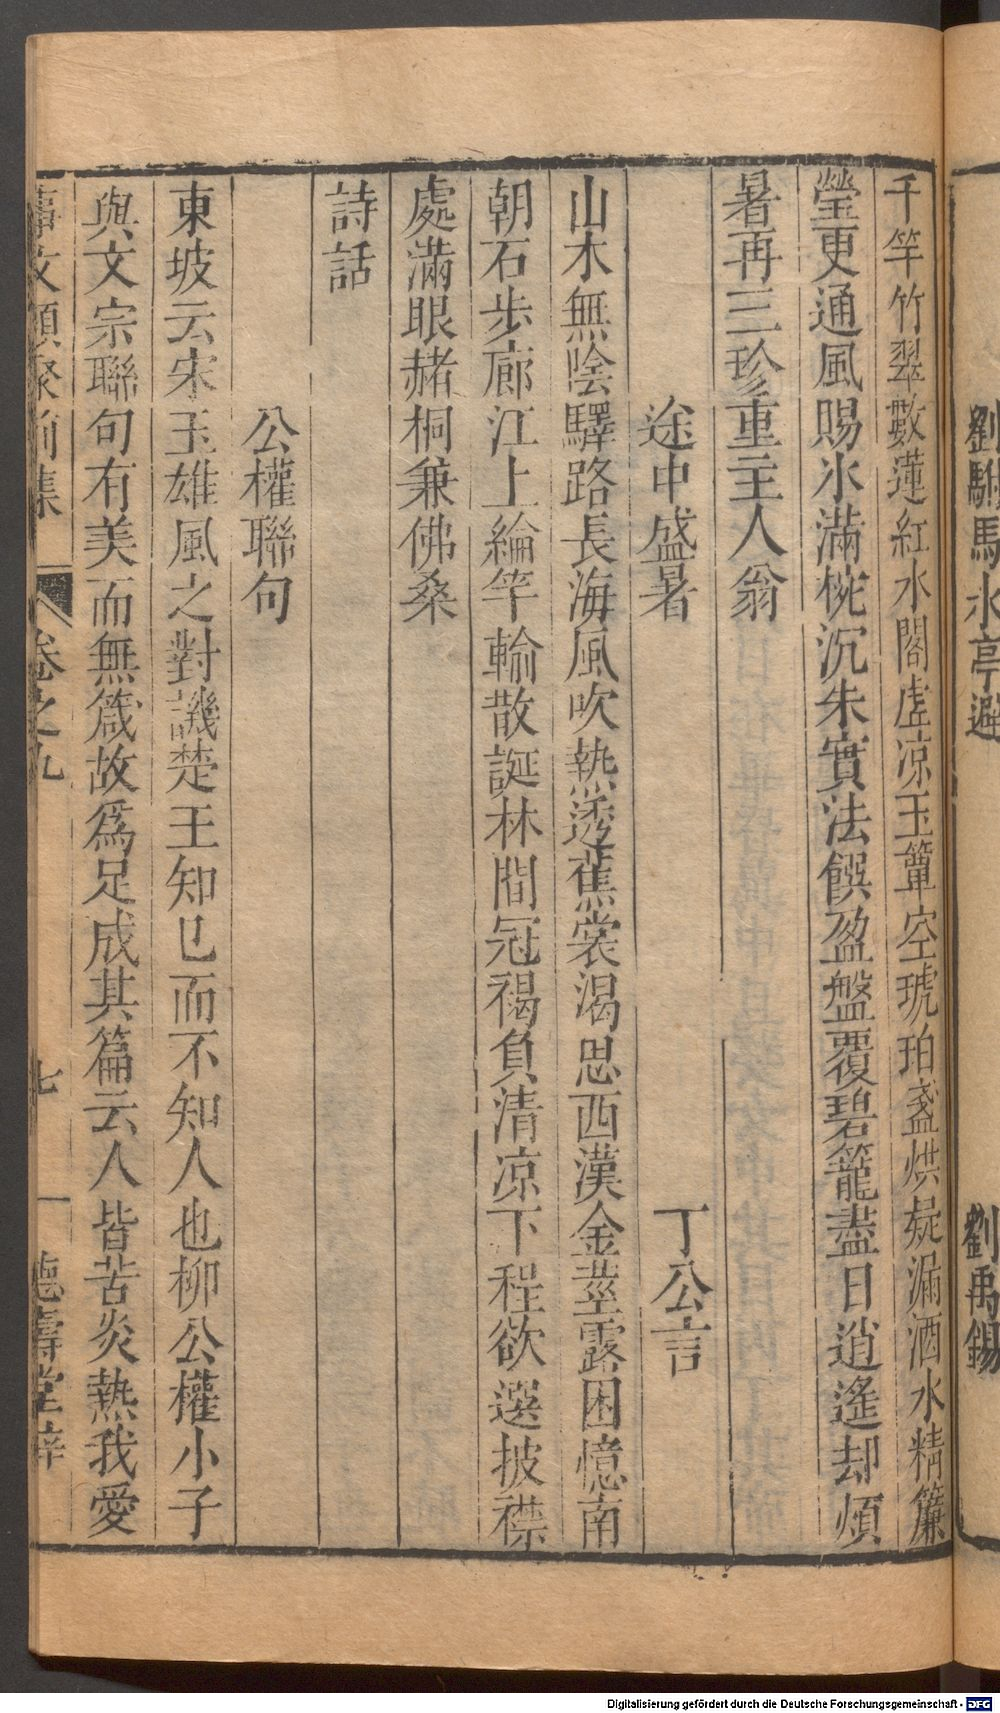 劉駙馬水亭避
劉禹錫
千竿竹翠數蓮紅水閣虛凉玉簟空琥珀盞烘疑漏酒水精簾
瑩更通風賜氷滿椀沉朱實法饌盈盤覆碧籠盡日逍遙却煩
暑再三珍重主人翁
途中盛暑
丁公言
山木無陰驛路長海風吹熱透蕉裳渴思西漢金莖露困憶南
朝石步廊江上綸竿輸散誕林間冠褐負清凉下程欲選披襟
處滿眼赭桐兼佛桑
詩話
公權聯句
東坡云宋玉雄風之對譏楚王知已而不知人也柳公權小子
與文宗聯句有美而無箴故爲足成其篇云人皆苦炎熱我愛
事文類聚前集
卷之九
七
德壽堂梓
Digitalisierung gefördert durch die Deutsche Forschungsgemeinschaft - DFG